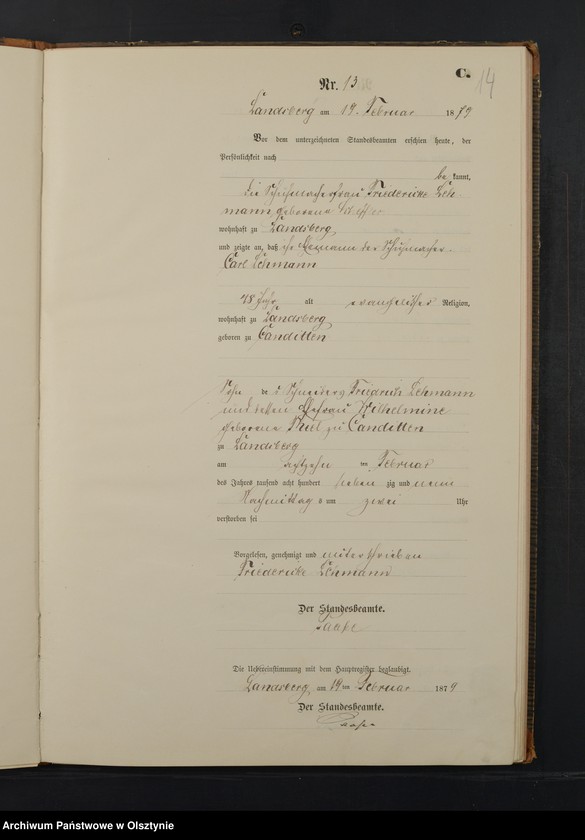 C.
14
Nr. 13
Landsberg am 19. Februar 1879
Vor dem unterzeichneten Standesbeamten erschien heute, der
Persönlichkeit nach
be kannt,
die Schuhmacherfrau Friedericke Leh-
mann geborene
wohnhaft zu Landsberg
und zeigte an, daß ihr Ehemann der Schuhmacher
Carl Lehmann
48 Jahr alt evangelischer Religion,
wohnhaft zu Landsberg
geboren zu Canditten
Sohn de s Friedrich Lehmann
und dessen Ehefrau Wilhelmine
geborene Thiel zu Canditten
zu Landsberg
am ten Februar
des Jahres tausend acht hundert sieben zig und neun
Nachmittag s um zwei Uhr
verstorben sei
Vorgelesen, genehmigt und unterschrieben
Friedericke Lehmann
Der Standesbeamte.
Die Uebereinstimmung mit dem Hauptregister beglaubigt.
Landsberg am 19 ten Februar 1879
Der Standesbeamte.
Archiwum Państwowe w Olsztynie